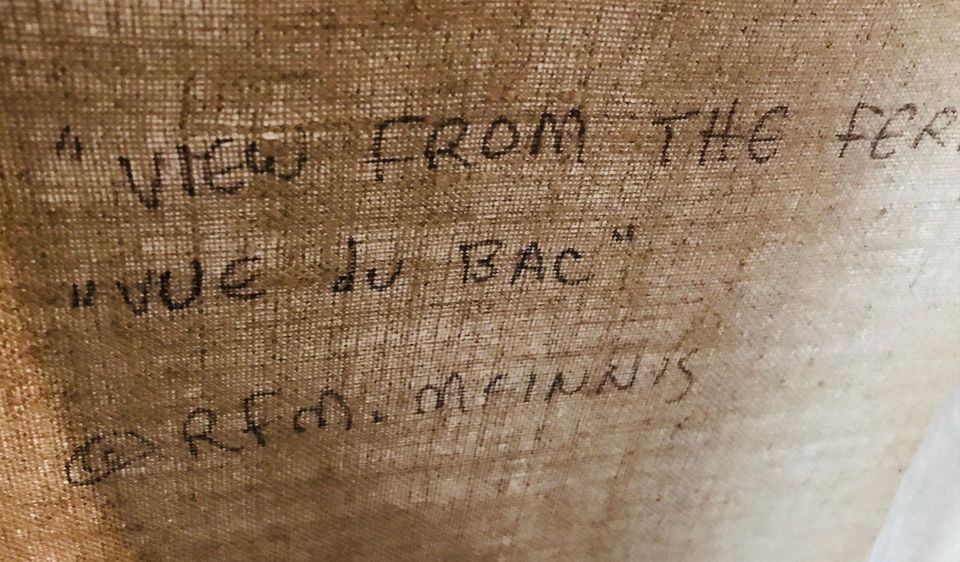 "VIEW FROM THE FER
"VUE du BAC"
© RFM. McINNIS